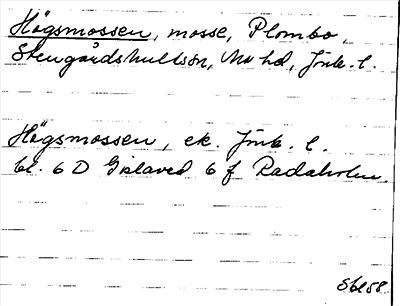 Högsmossen, mosse, Plombo,
Stengårdshultssn, Mo hd, Jönk. l.
Högsmossen, ek. Jönk. l.
bl. 6 D Gislaved 6 f Radaholm.
Sbl58